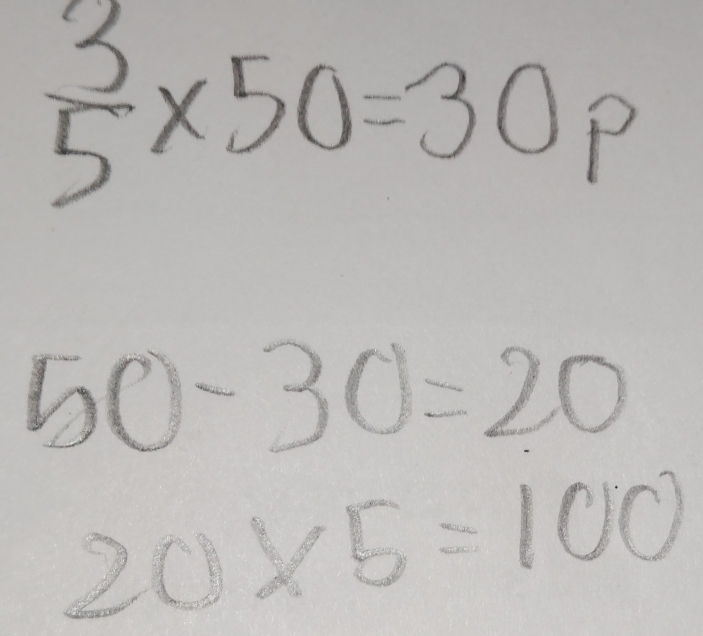 3/5 × 50 = 30 p
50 - 30 = 20
20 × 5 = 100